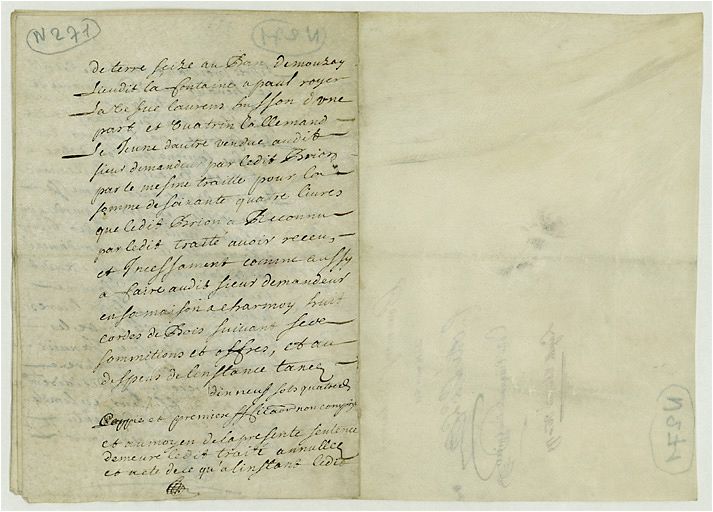 N 271
de terre seize au Ban demouzay
Lieudit la fontaine a paul royer
La Vefue laurens husson d'vne
part et Vuatrin Lallemand
Le Jeune dautre vendue audit
sieur demandeur par ledit Brion
par le mesme traitté pour la
somme de soixante quatre liures
que ledit Brion a Reconnu
par ledit traité auoir receu,
et Incessament comme aussy
a faire audit sieur demandeur
en sa maison a charmoy huit
cordes de Bois suiuant ses
sommitions et offres, et au
despens de linstance taxez
dix neuf sols quatre d
Coppie et premier non compris
et au moyen de la presente sentence
demeure ledit traité annullee
et acte de ce qu'a linstant ledit
N 271